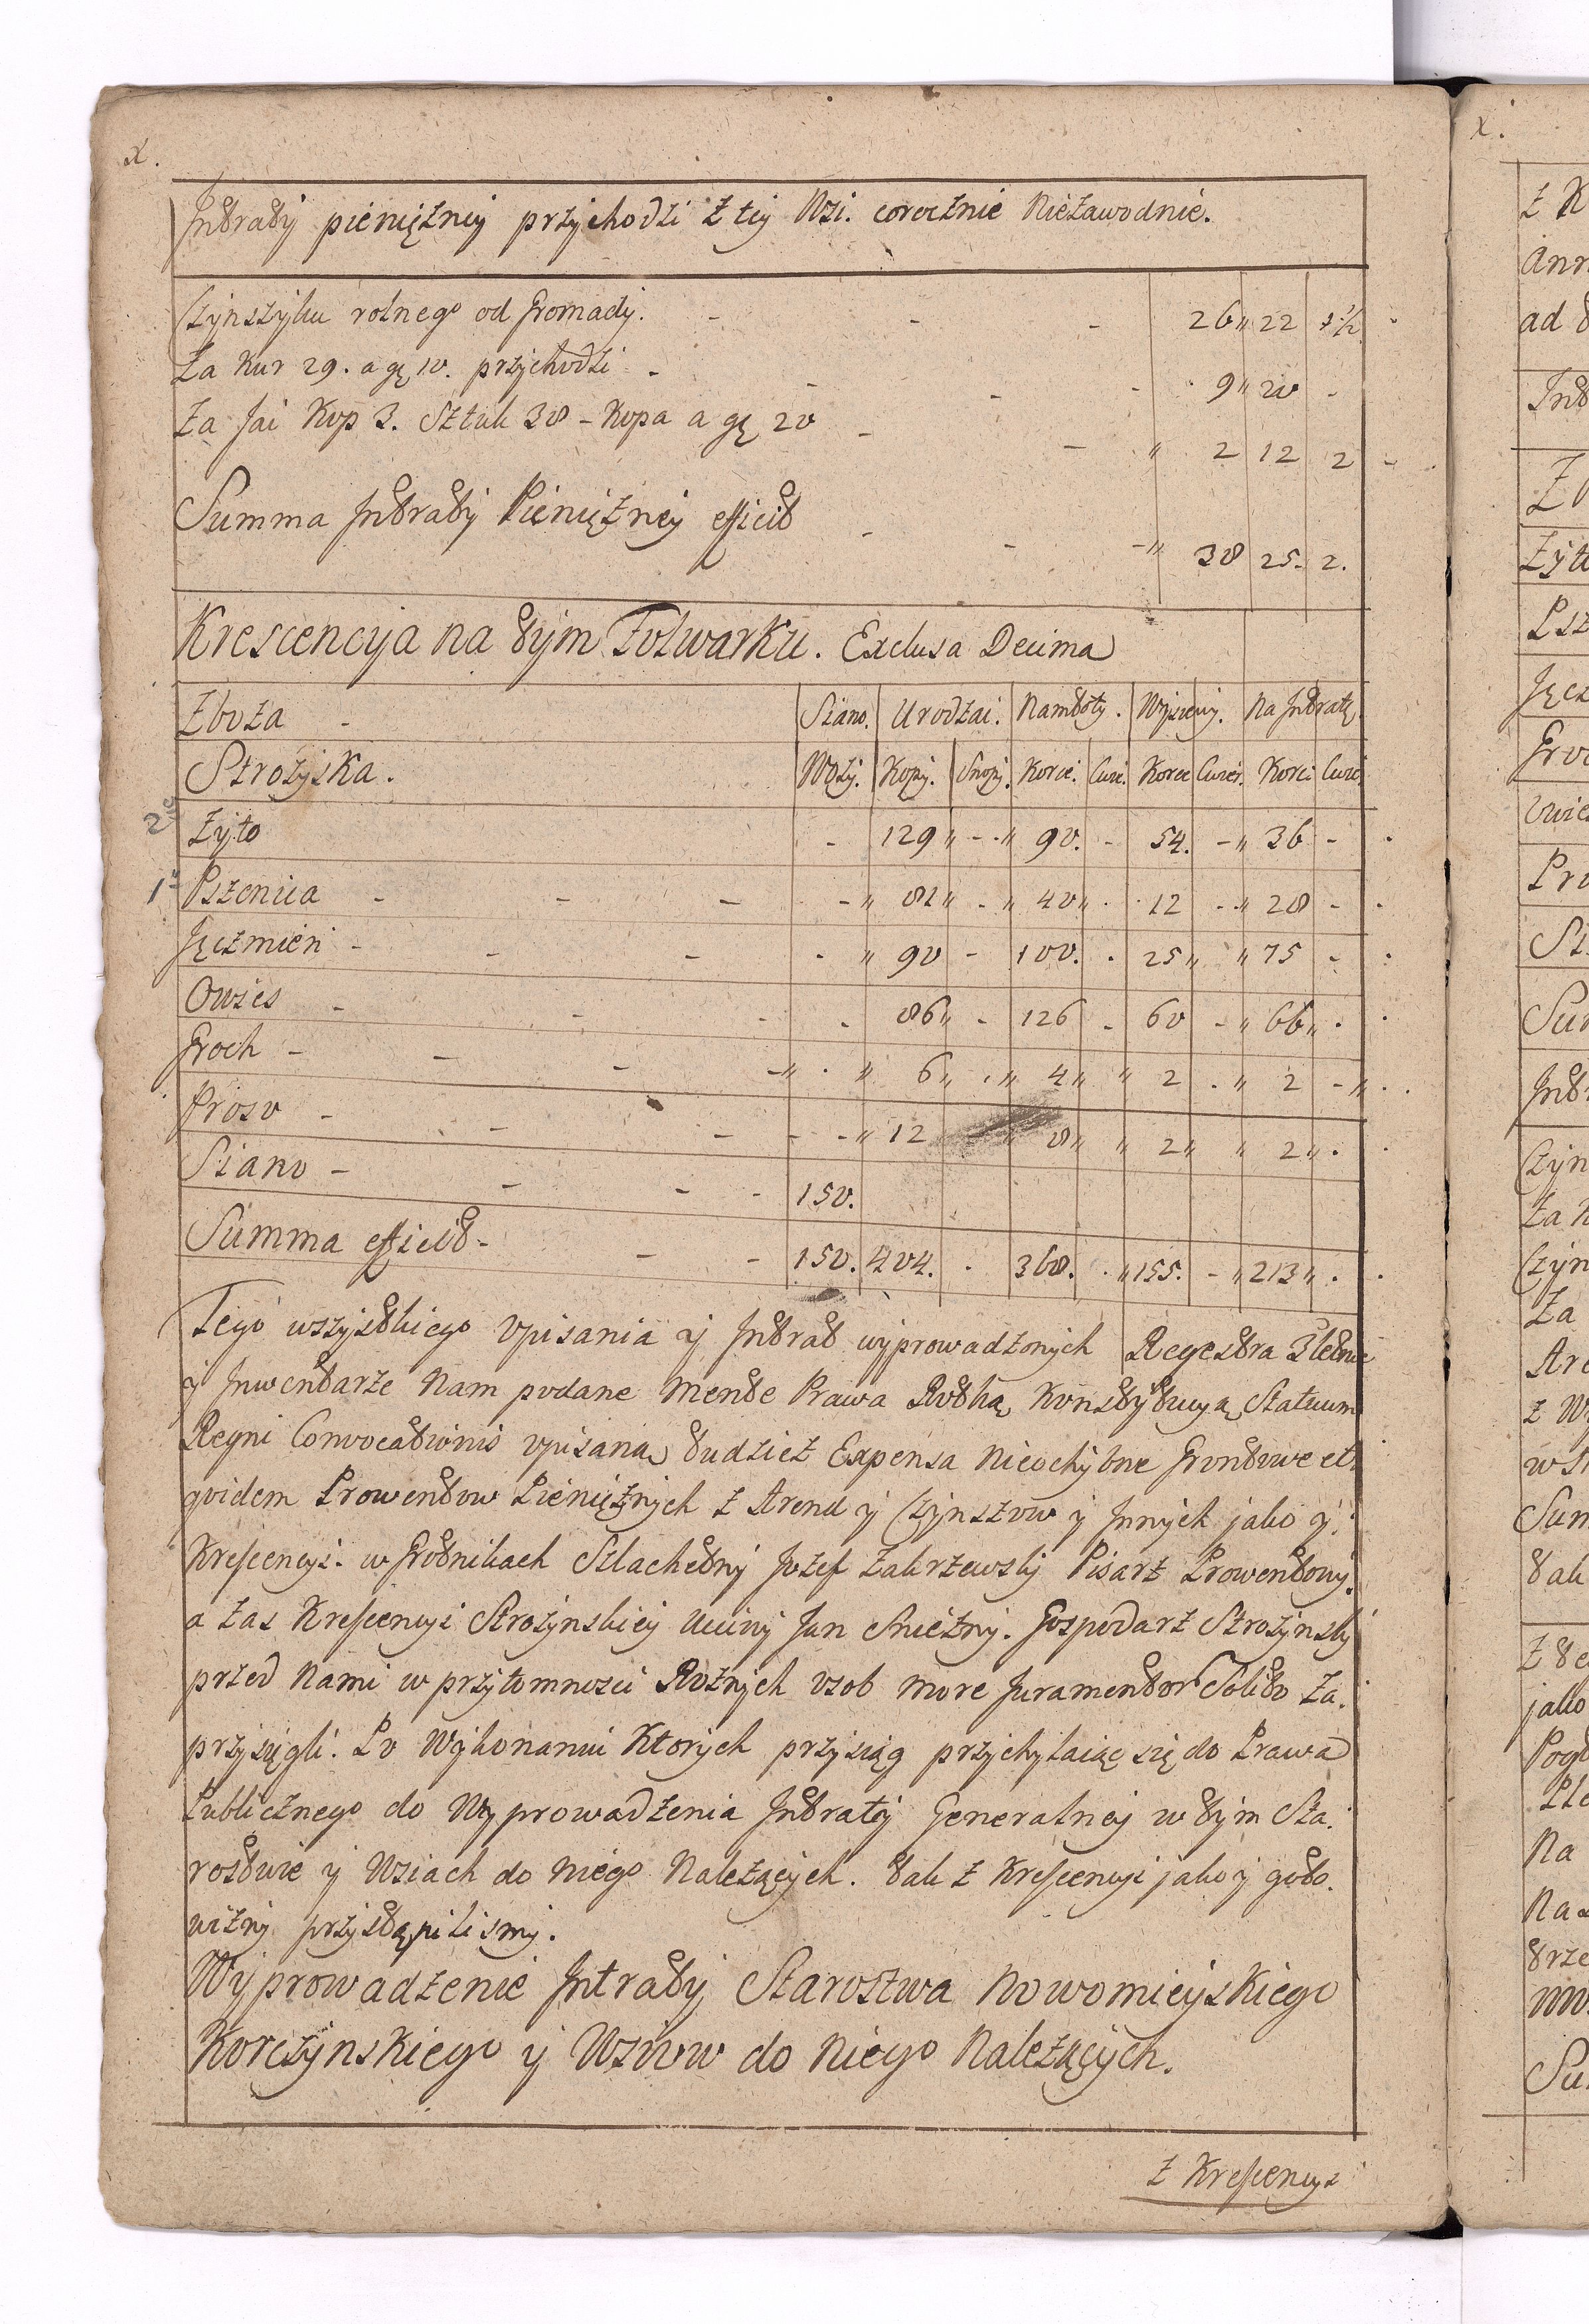 x.
Intraty pieniężney przychodzi z tey Wsi. corocznie Niezawodnie.
Czynszyku rolnego od Gromady. - - - 26 " 22 1½
Za Kur 29. a gę 10. przychodzi - - - - 9 " 20 -
Za Jai Kop 3. Sztuk 38 - Kopa a gę 20 - - " 2 12 2 -
Summa Intraty Pieniężney efficit - - - " 38 25. 2.
Krescencyja na tym Folwarku. Exclusa Decima
Zboża - Siano. Urodzai. Namłoty. Wysiewy. Na Intratę.
Strożyska. Wozy. Kopy. Snopy. Korce. Cwie. Korce Cwier. Korci Cwie.
2do Żyto - 129 " - " 90. - 54. - " 36 -
1o Pszenica - - - - " 81 " - " 40 " . 12 - " 28 -
Jęczmień - - - . " 90 - 100. . 25 " " 75 -
Owies - - - - 86 " - 126 - 60 - " 66 " .
Groch - - - - " . " 6 " . " 4 " " 2 . " 2 - "
Proso - - - - - " 12 8 " " 2 " " 2 " .
Siano - - - - 150.
Summa efficit - - - 150. 404. . 368. . " 155. - " 213 " .
Tego wszystkiego Vpisania y Intrat wyprowadzonych Regestra 3letnie
y Inwentarze Nam podane Mente Prawa Rotką Konstytucyą Statuum
Regni Convocationis vpisaną tudzież Expensa Nieochybne Gruntowe et
qvidem Prowentow Pieniężnych z Arend y Czynszow y Innych jako y
Krescencyi. w Grotnikach Szlachetny Jozef Zakrzewsky Pisarz Prowentowy.
a zas Krescencyi Strożynskiey Uciwy Jan Snieżny. Gospodarz Strożynsky
przed Nami w przytomnosci Rożnych osob more Juramentor Solito Za.
przysięgli. Po Wykonaniu Ktorych przysiąg przychylaiąc się do Prawa
Publicznego do Wyprowadzenia Intraty Generalney w tym Sta.
rostwie y Wsiach do Niego Należących. tak z Krescencyi jako y goto.
wizny przystąpilismy.
Wyprowadzenie Intraty Starostwa Nowomieyskiego
Korczynskiego y Wsiow do Niego Należących.
Z Krescencyi